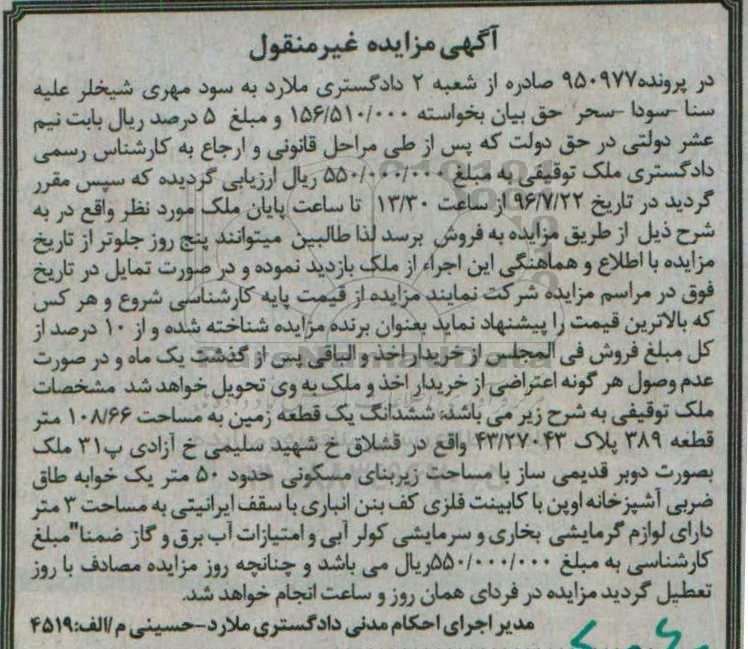 آگهی مزایده غیرمنقول
در پرونده۹۵۰۹۷۷ صادره از شعبه ۲ دادگستری ملارد به سود مهری شیخلر علیه
سنا -سودا -سحر حق بیان بخواسته ۱۵۶/۵۱۰/۰۰۰ و مبلغ ۵ درصد ریال بابت نیم
عشر دولتی در حق دولت که پس از طی مراحل قانونی و ارجاع به کارشناس رسمی
دادگستری ملک توقیفی به مبلغ ۵۵۰/۰۰۰/۰۰۰ ریال ارزیابی گردیده که سپس مقرر
گردید در تاریخ ۹۶/۷/۲۲ از ساعت ۱۳/۳۰ تا ساعت پایان ملک مورد نظر واقع در به
شرح ذیل از طریق مزایده به فروش برسد لذا طالبین میتوانند پنج روز جلوتر از تاریخ
مزایده با اطلاع و هماهنگی این اجراء از ملک بازدید نموده و در صورت تمایل در تاریخ
فوق در مراسم مزایده شرکت نمایند مزایده از قیمت پایه کارشناسی شروع و هر کس
که بالاترین قیمت را پیشنهاد نماید بعنوان برنده مزایده شناخته شده و از ۱۰ درصد از
کل مبلغ فروش فی المجلس از خریدار اخذ و الباقی پس از گذشت یک ماه و در صورت
عدم وصول هر گونه اعتراضی از خریدار اخذ و ملک به وی تحویل خواهد شد مشخصات
ملک توقیفی به شرح زیر می باشد: ششدانگ یک قطعه زمین به مساحت ۱۰۸/۶۶ متر
قطعه ۳۸۹ پلاک ۴۳/۲۷۰۴۳ واقع در قشلاق خ شهید سلیمی خ آزادی پ۳۱ ملک
بصورت دوبر قدیمی ساز با مساحت زیربنای مسکونی حدود ۵۰ متر یک خوابه طاق
ضربی آشپزخانه اوپن با کابینت فلزی کف بنن انباری با سقف ایرانیتی به مساحت ۳ متر
دارای لوازم گرمایشی بخاری و سرمایشی کولر آبی و امتیازات آب برق و گاز ضمنا"مبلغ
کارشناسی به مبلغ ۵۵۰/۰۰۰/۰۰۰ریال می باشد و چنانچه روز مزایده مصادف با روز
تعطیل گردید مزایده در فردای همان روز و ساعت انجام خواهد شد.
مدیر اجرای احکام مدنی دادگستری ملارد-حسینی م/الف:۴۵۱۹